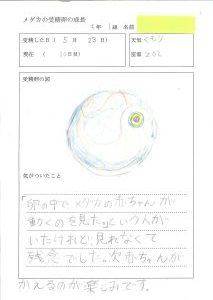 メダカの受精卵の成長
5年 組 名前
受精した日( 5月 23日) 天気 くもり
現在 ( 10日目) 室温 20℃
受精卵の図
気がついたこと
「卵の中でメダカの赤ちゃんが
動くのを見た。」という人が
いたけれど、見れなくて
残念でした。次赤ちゃんが
かえるのが楽しみです。